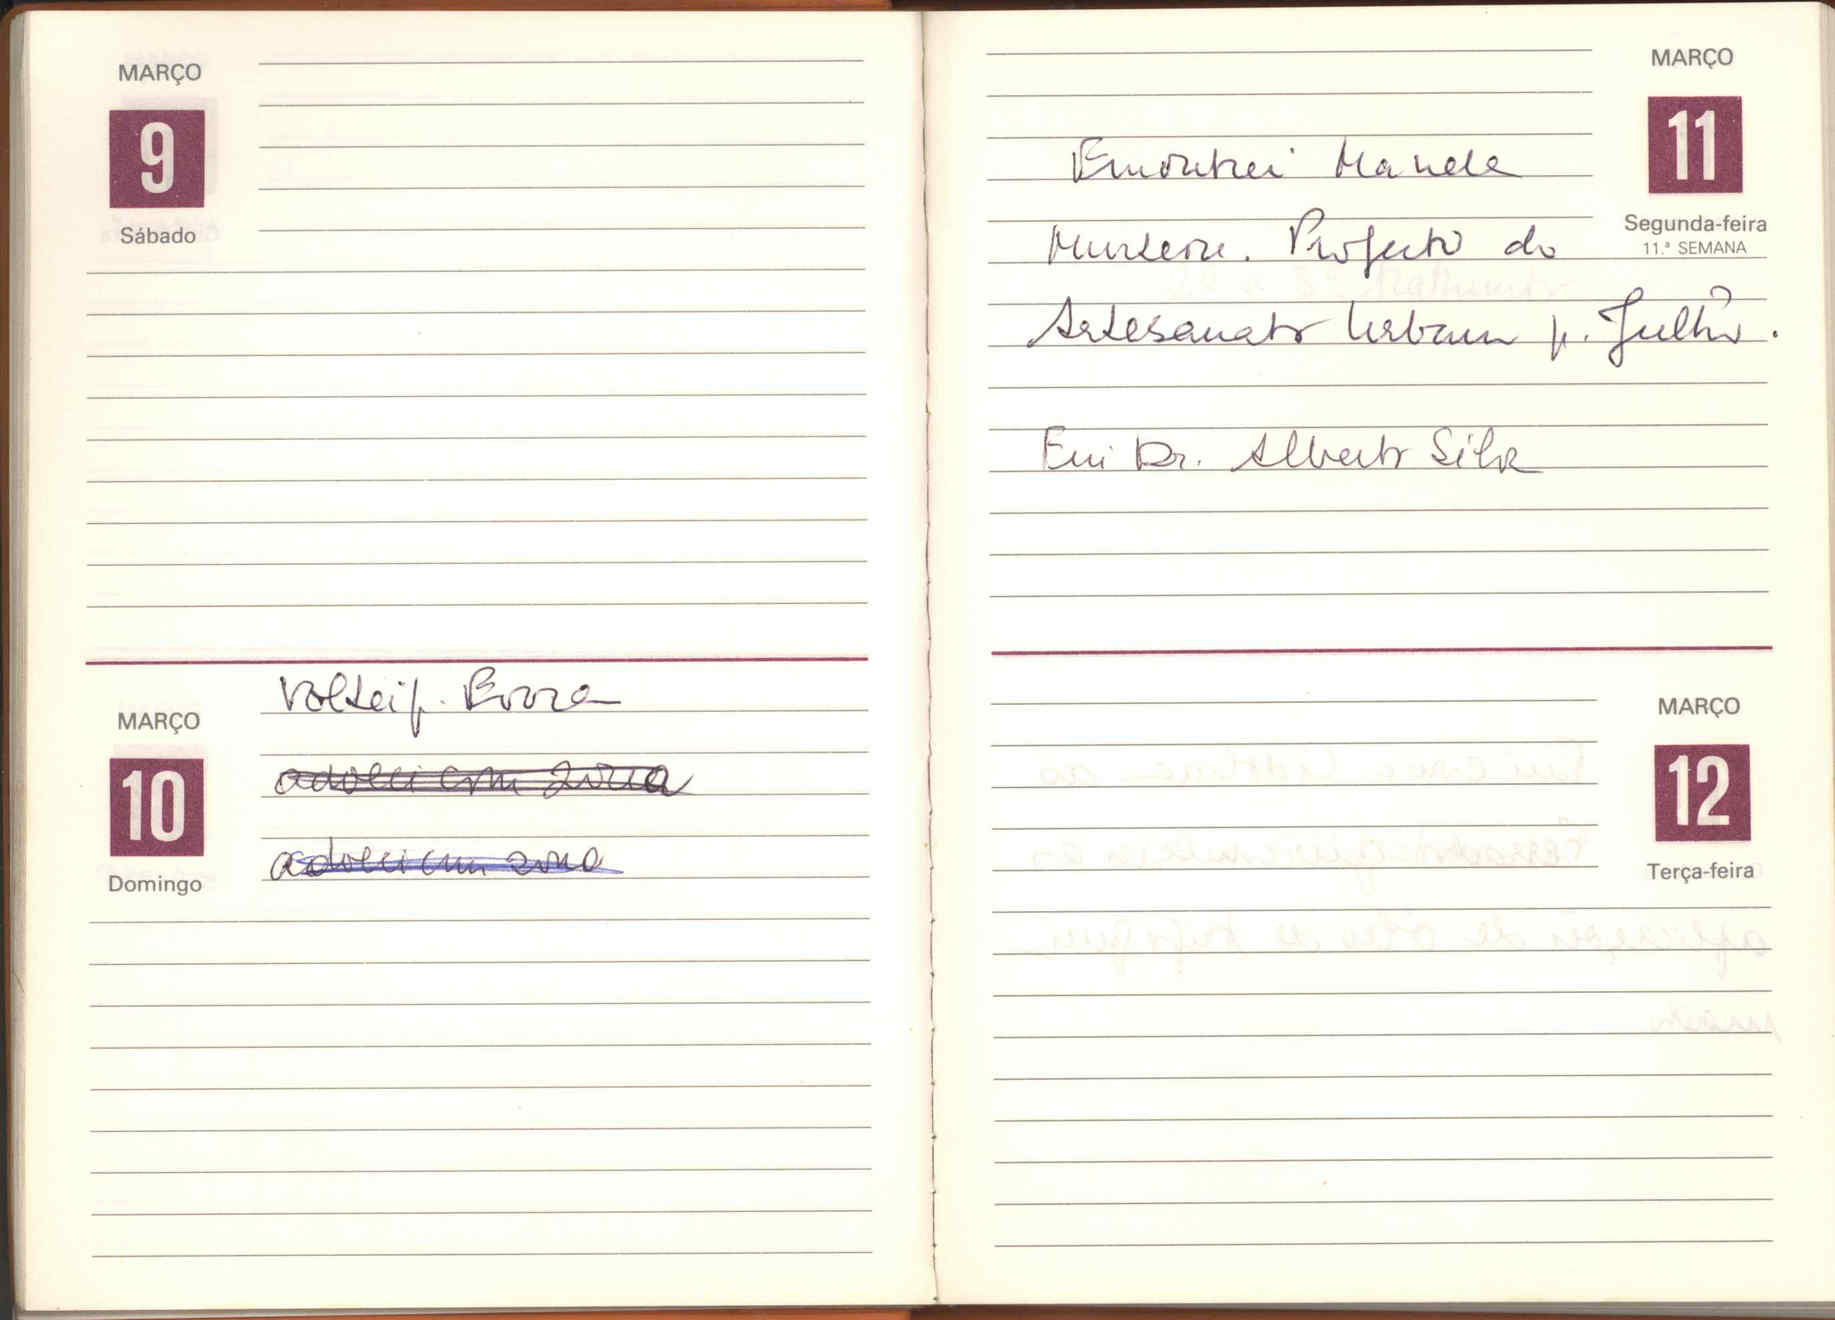 MARÇO
9
Sábado
MARÇO
10
Domingo
Voltei p.
adoeci com zona
adoeci com zona
MARÇO
11
Segunda-feira
11.ª SEMANA
Encontrei
Projecto do
Artesanato Urbano p. Julho.
Dr. Alberto Silva
MARÇO
12
Terça-feira